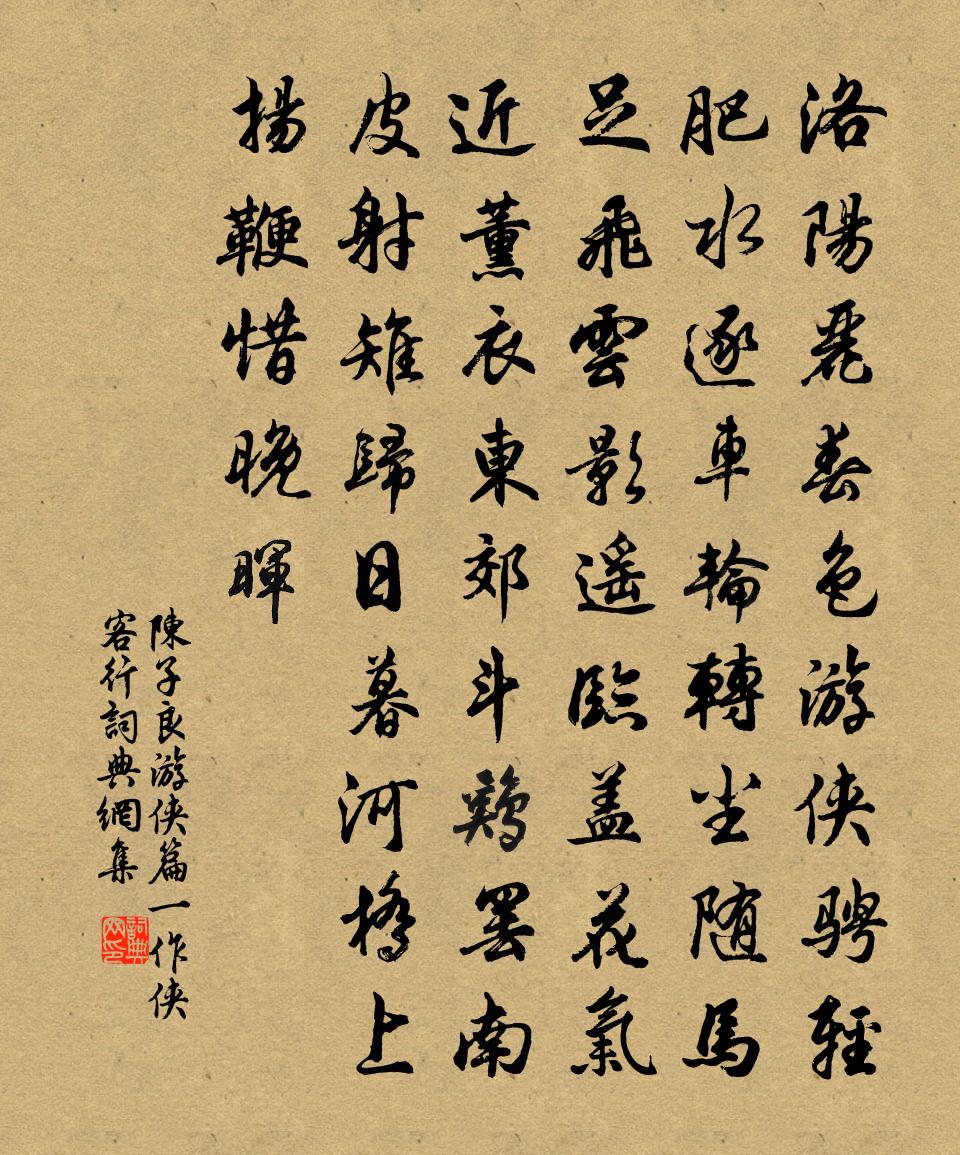 洛陽麗春色游俠騁輕
肥水逐車輪轉塵随馬
足飛雲影遥臨盖花氣
近薰衣東郊斗鷄罢南
皮射雉歸日暮河橋上
揚鞭惜晚暉
陳子良游俠篇一作俠
客行詞典網集
詞典网印